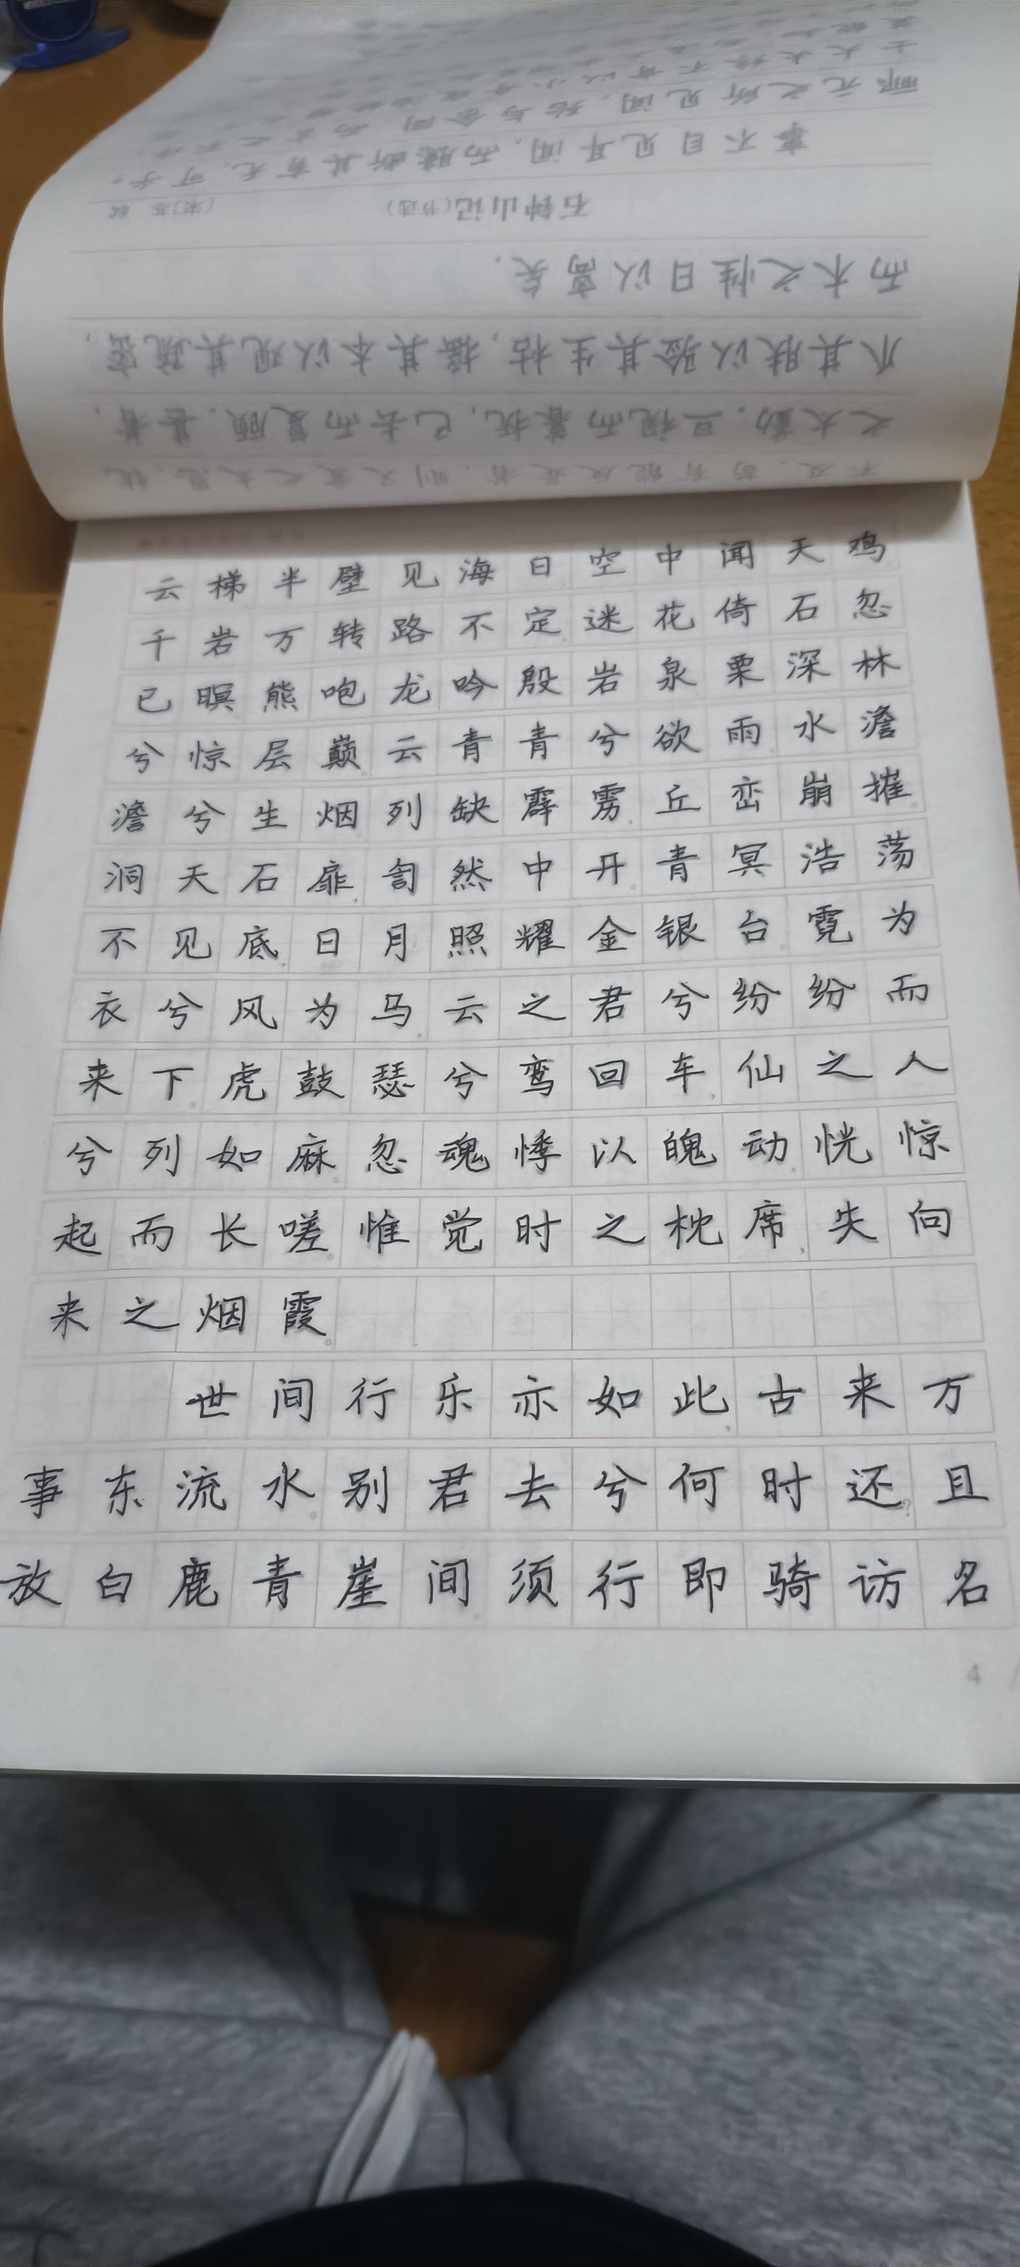 云梯半壁见海日空中闻天鸡
千岩万转路不定迷花倚石忽
已暝熊咆龙吟殷岩泉栗深林
兮惊层巅云青青兮欲雨水澹
澹兮生烟列缺霹雳丘峦崩摧
洞天石扉訇然中开青冥浩荡
不见底日月照耀金银台霓为
衣兮风为马云之君兮纷纷而
来下虎鼓瑟兮鸾回车仙之人
兮列如麻忽魂悸以魄动恍惊
起而长嗟惟觉时之枕席失向
来之烟霞
世间行乐亦如此古来万
事东流水别君去兮何时还且
放白鹿青崖间须行即骑访名
4
石钟山记(节选)
事不目见耳闻,而臆断其有无,可乎。
而木之性日以离矣.
爪其肤以验其生枯,摇其本以观其疏密,
之太勤.旦视而暮抚,已去而复顾.甚者,